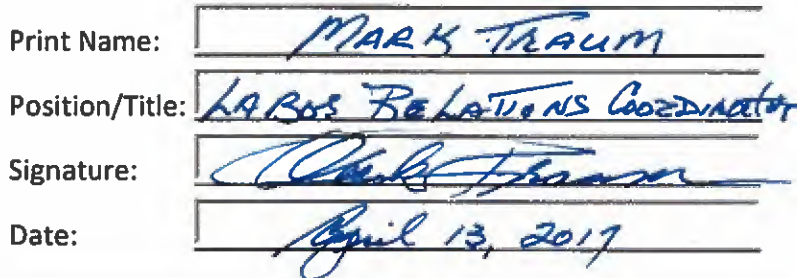 Print Name: MARK TRAUM
Position/Title: LABOR RELATIONS COORDINATOR
Signature: Mark Traum
Date: April 13, 2017